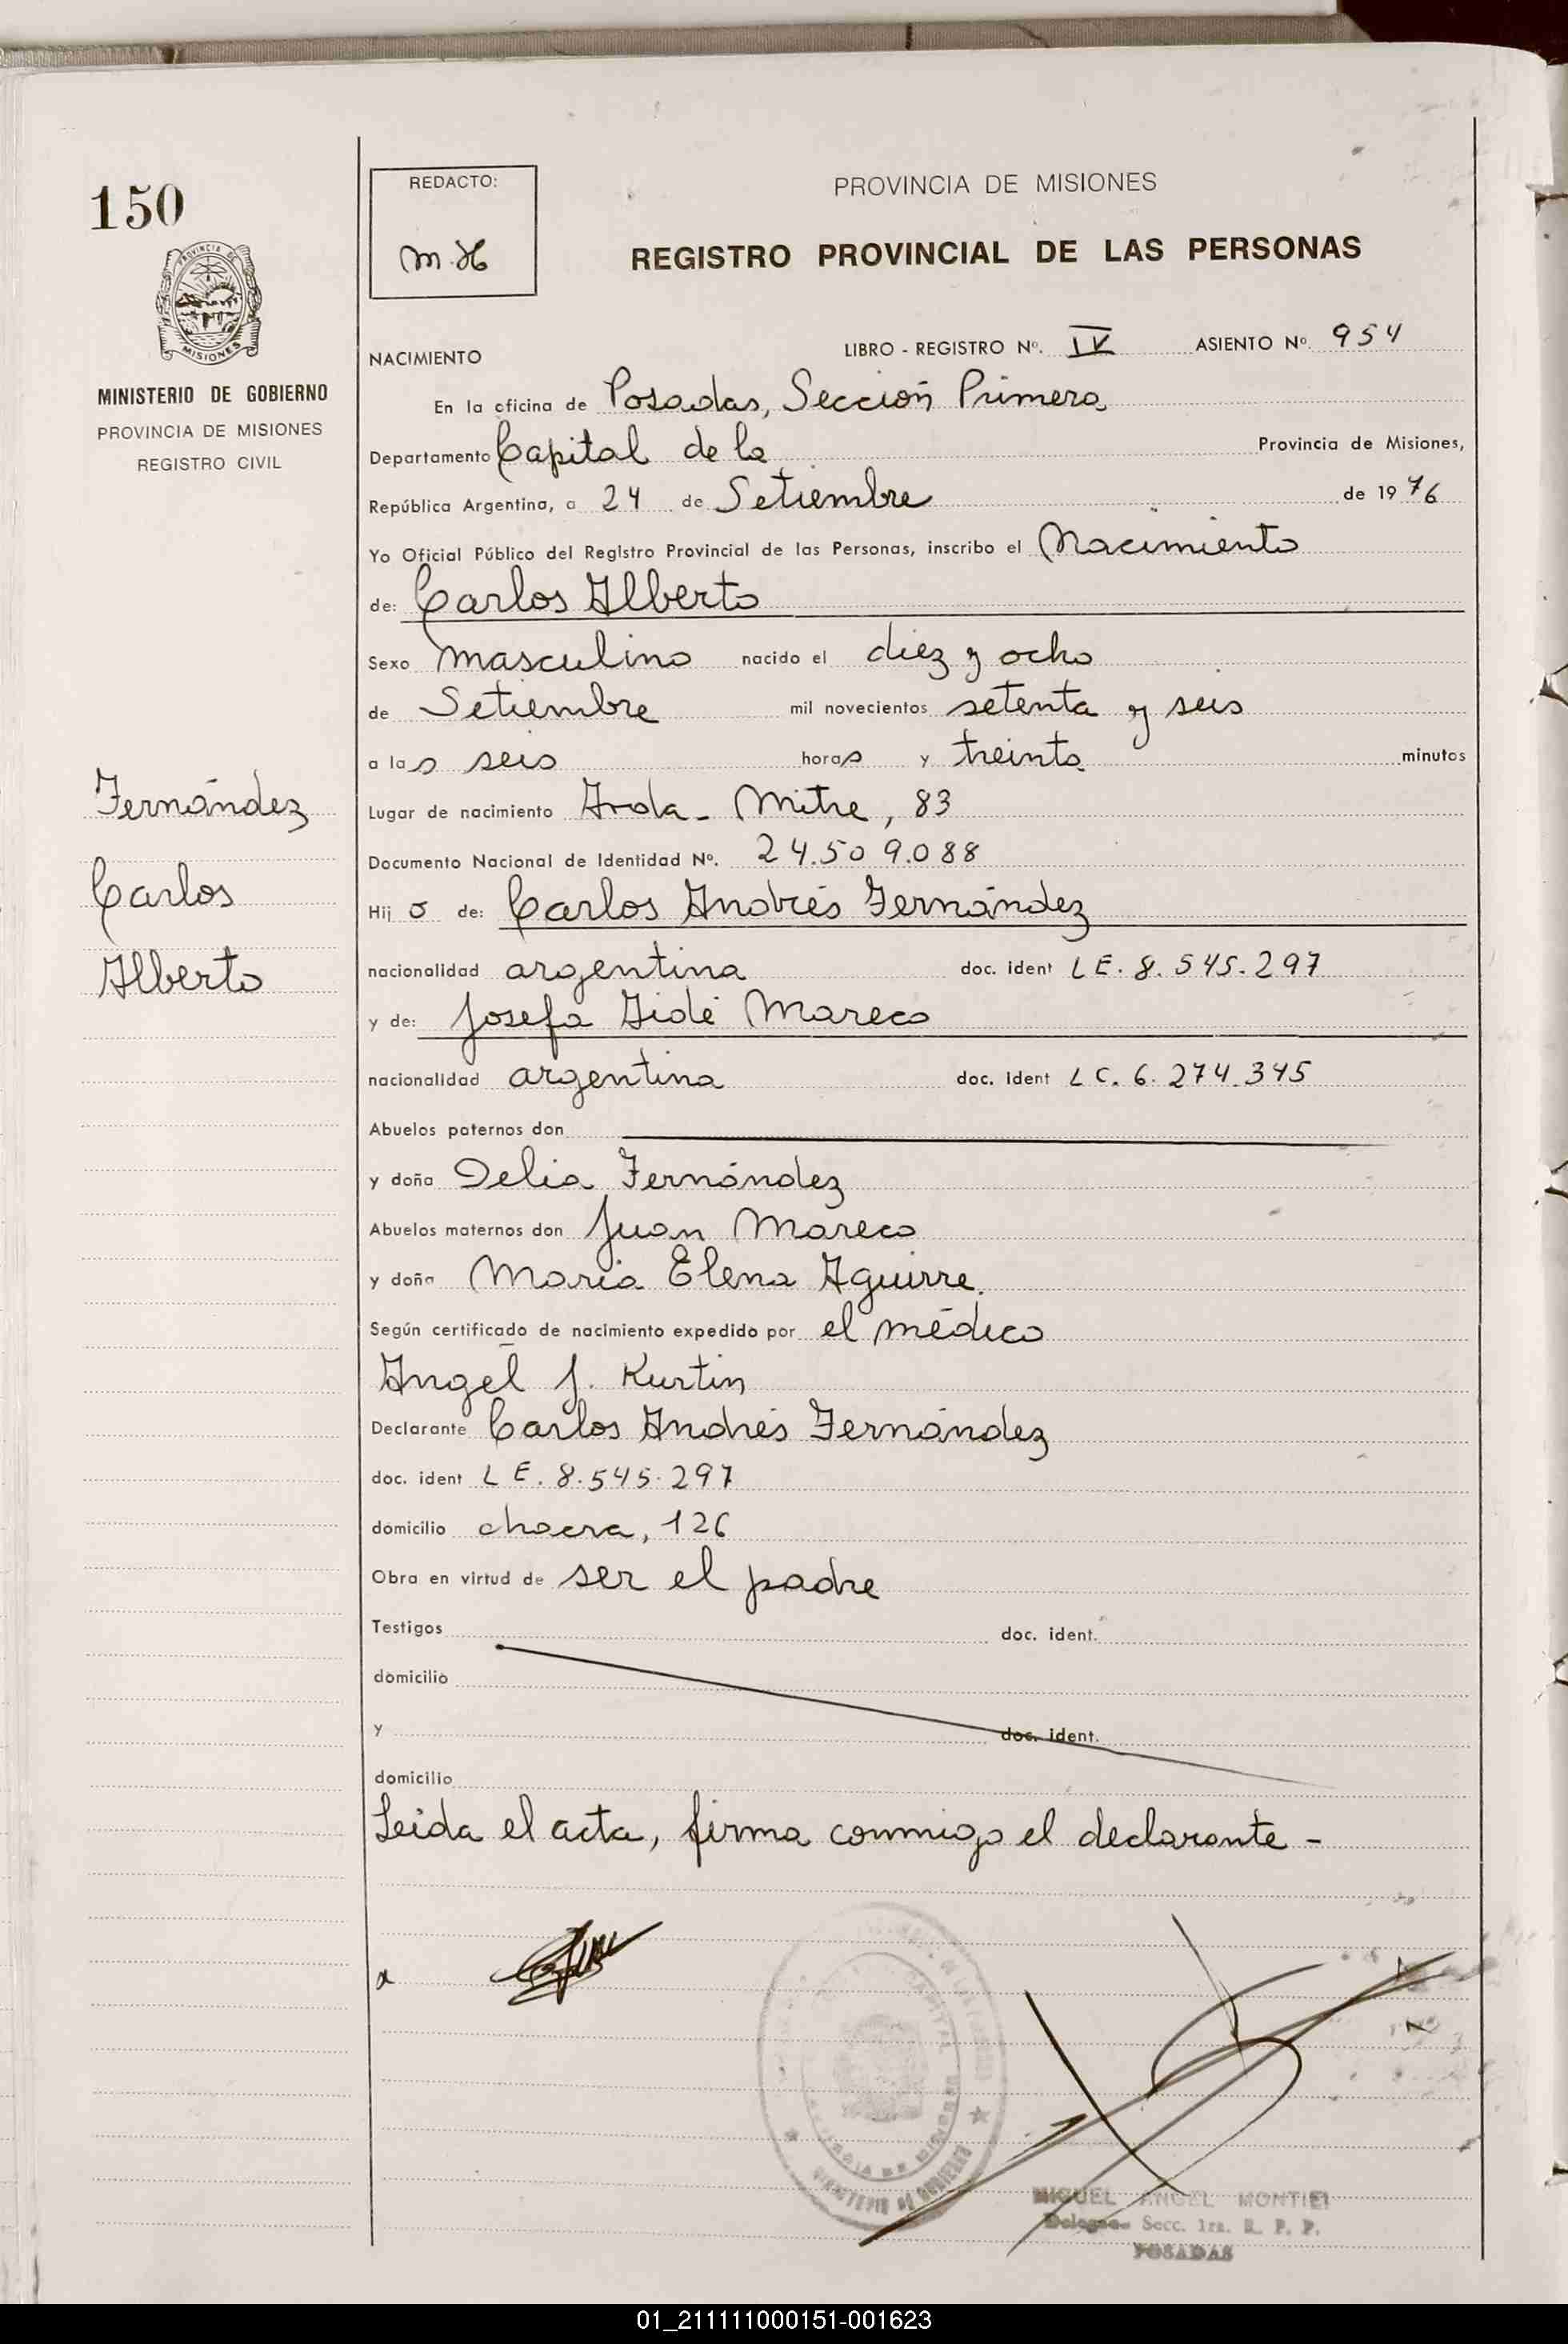 150
REDACTO:
M.H
PROVINCIA DE MISIONES
REGISTRO PROVINCIAL DE LAS PERSONAS
MISIONES
MINISTERIO DE GOBIERNO
PROVINCIA DE MISIONES
REGISTRO CIVIL
NACIMIENTO LIBRO - REGISTRO Nº. IV ASIENTO Nº 954
En la oficina de Posadas, Sección Primera
Departamento Capital de la Provincia de Misiones,
República Argentina, a 24 de Setiembre de 1976
Yo Oficial Público del Registro Provincial de las Personas, inscribo el Nacimiento
de: Carlos Alberto
Sexo masculino nacido el diez y ocho
de Setiembre mil novecientos setenta y seis
a las seis horas y treinta minutos
Fernández
Carlos
Alberto
Lugar de nacimiento Avda. Mitre, 83
Documento Nacional de Identidad Nº. 24.509.088
Hijo de: Carlos Andrés Fernández
nacionalidad argentina doc. ident LE. 8.545.297
y de: Josefa Mareco
nacionalidad argentina doc. ident LC. 6.274.345
Abuelos paternos don
y doña Delia Fernández
Abuelos maternos don Juan Mareco
y doña María Elena Aguirre.
Según certificado de nacimiento expedido por el médico
Angel J. Kurtin
Declarante Carlos Andrés Fernández
doc. ident LE. 8.545.297
domicilio chacra, 126
Obra en virtud de ser el padre
Testigos doc. ident.
domicilio
y doc. ident.
domicilio
Leida el acta, firma conmigo el declarante -
MIGUEL ANGEL MONTIEL
Delegado Secc. 1ra. R. P. P.
POSADAS
01_211111000151-001623